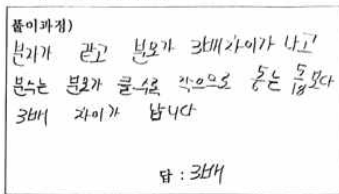 풀이과정)
분자가 같고 분모가 3배 차이가 나고
분수는 분모가 클수록 작으므로 5/6는 5/18보다
3배 차이가 납니다
답 : 3배